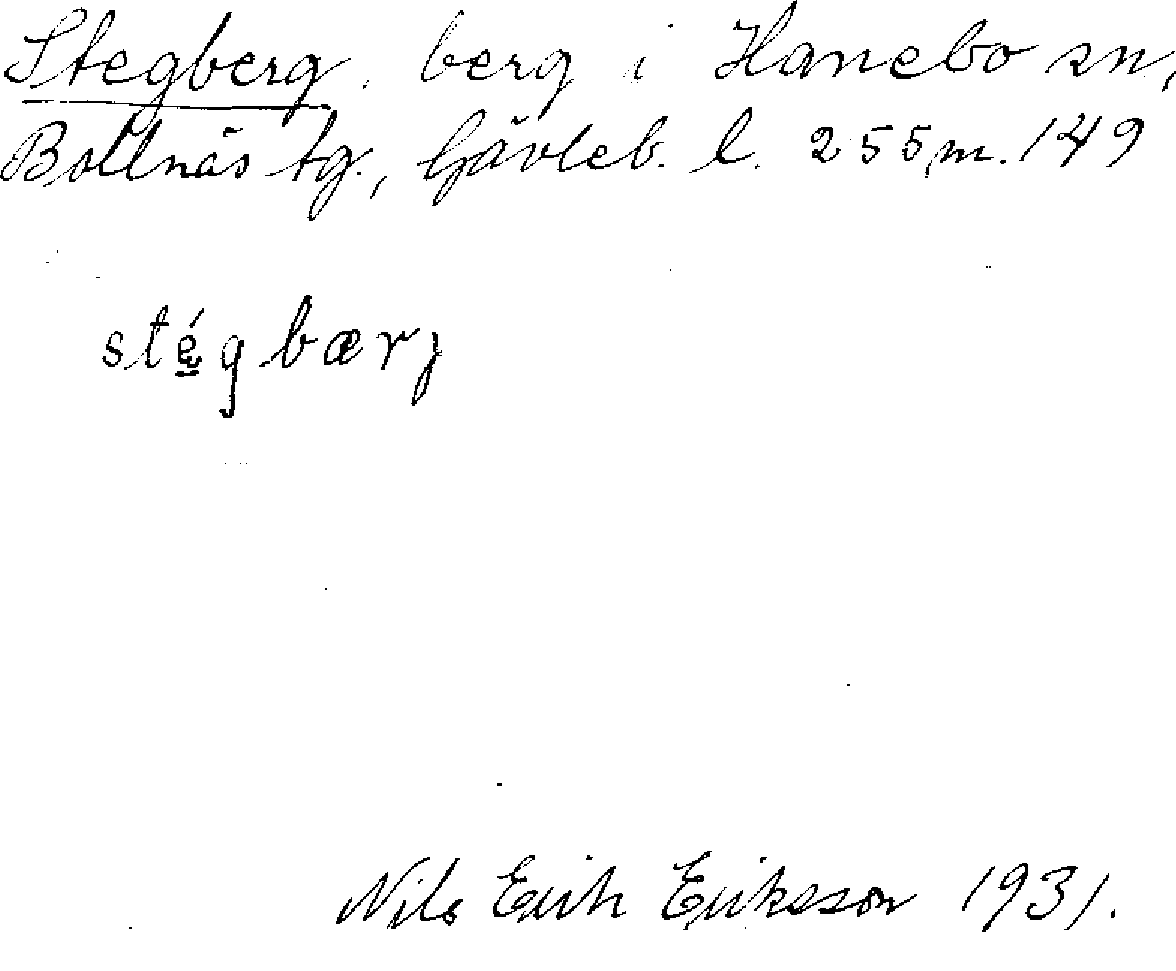 Stegberg, berg i Hanebo sn,
Bollnäs tg., Gävleb. l. 255 m. 149
stégbærj
Nils Erik Eriksson 1931.